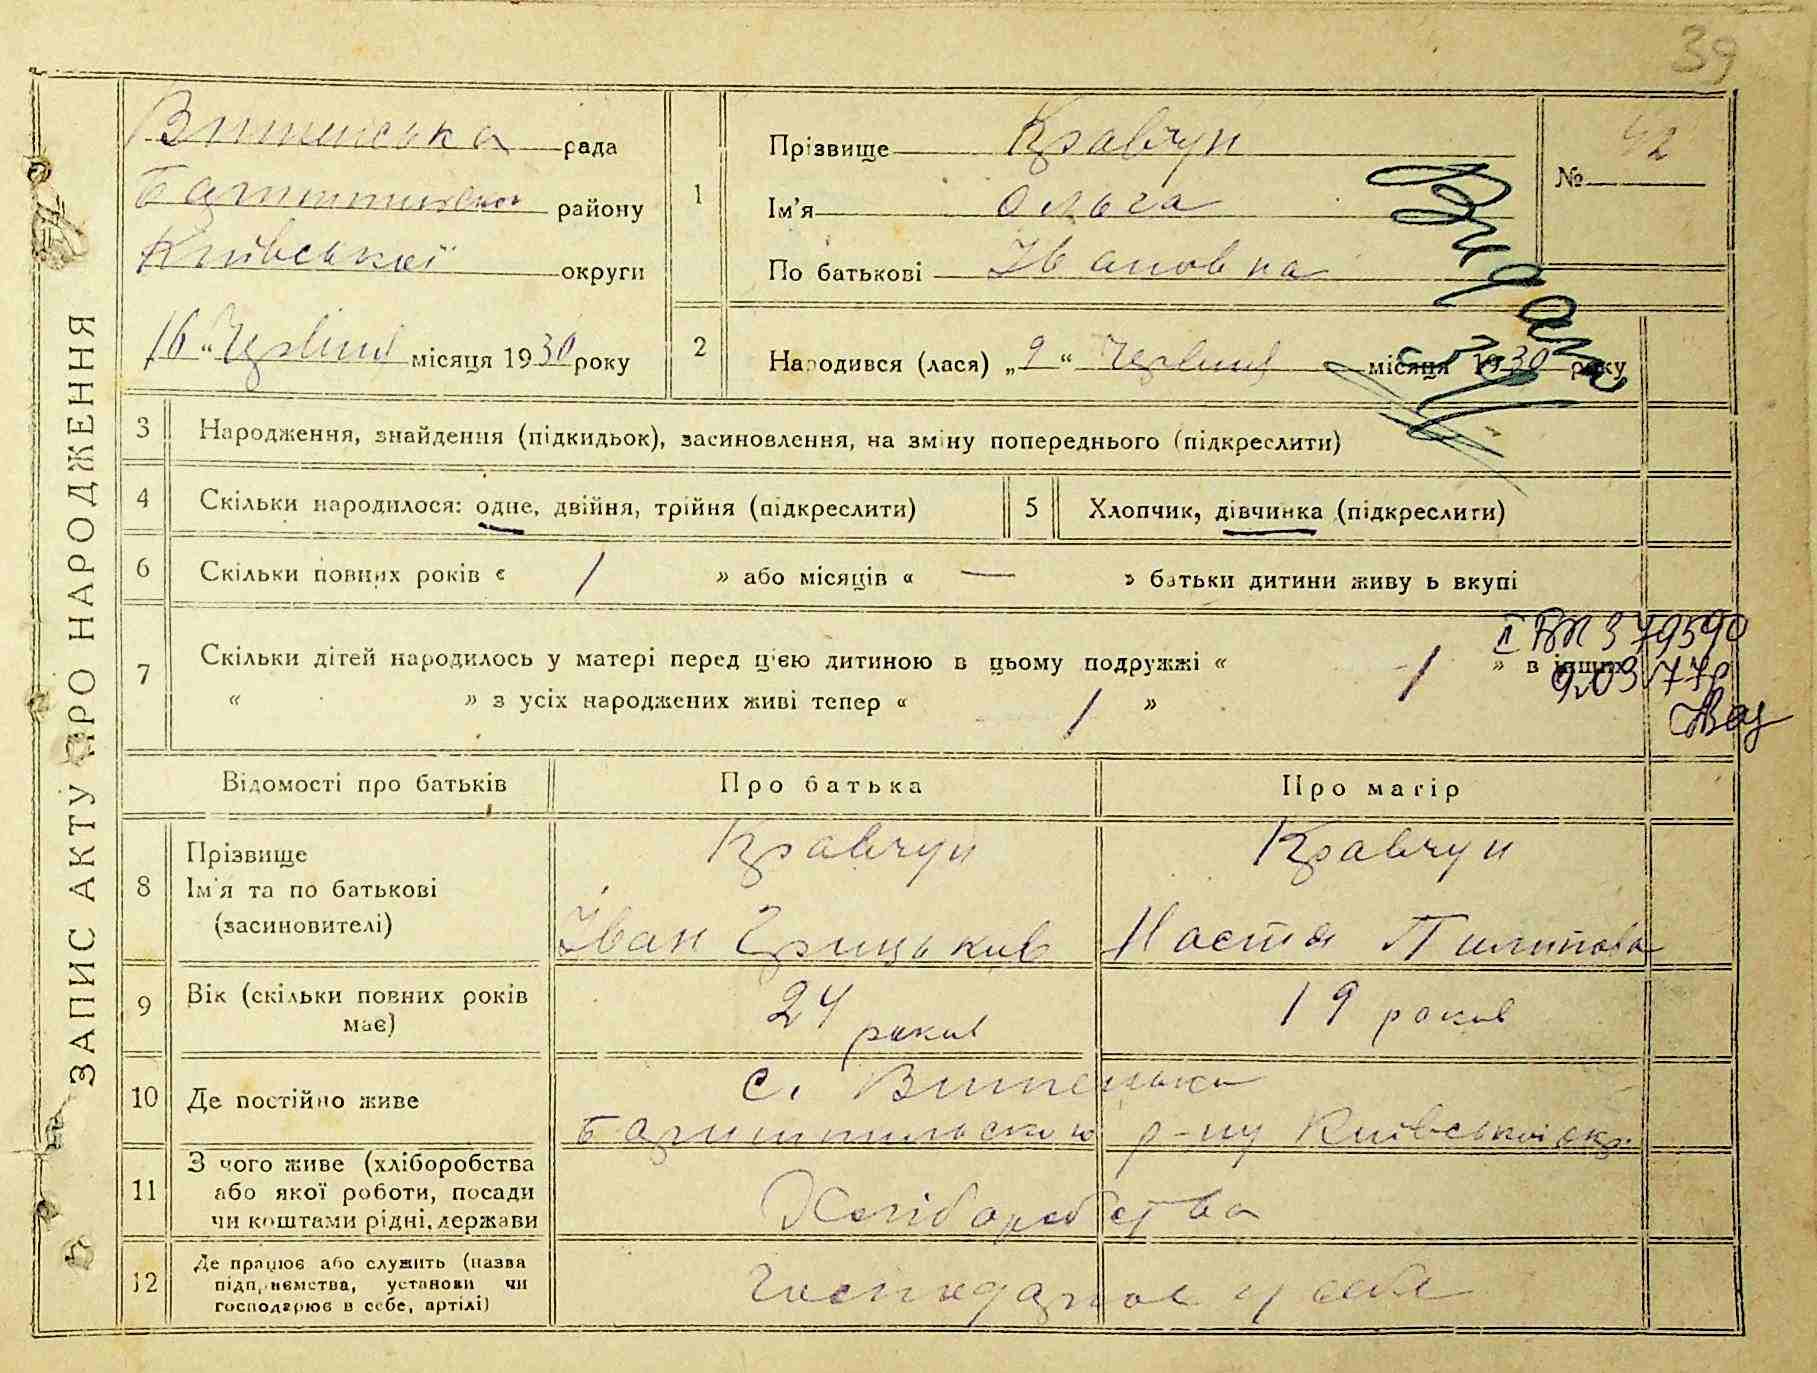 39
ЗАПИС АКТУ ПРО НАРОДЖЕННЯ
рада
району
Київської округи
16 " Червня місяця 1930 року
1
Прізвище Кравчун
Ім'я Ольга
По батькові Івановна
№ 42
2
Народився (лася) „ 9 " Червня місяця 1930 року
Видано
3 Народження, знайдення (підкидьок), засиновлення, на зміну попереднього (підкреслити)
4 Скільки народилося: одне, двійня, трійня (підкреслити)
5 Хлопчик, дівчинка (підкреслити)
6 Скільки повних років « 1 » або місяців « — » батьки дитини живуть вкупі
7 Скільки дітей народилось у матері перед цією дитиною в цьому подружжі « 1 » в інших
« » з усіх народжених живі тепер « 1 »
379590
9.03.77р
Відомості про батьків
Про батька
Про матір
8 Прізвище
Ім'я та по батькові
(засиновителі)
Кравчун
Іван Грицьків
Кравчун
Настя Пилипова
9 Вік (скільки повних років має)
24 роки
19 років
10 Де постійно живе
с.
р-ну Київської окр.
11 З чого живе (хліборобства або якої роботи, посади чи коштами рідні, держави
Хліборобства
12 Де працює або служить (назва підприємства, установи чи господарює в себе, артілі)
Господарює у себе